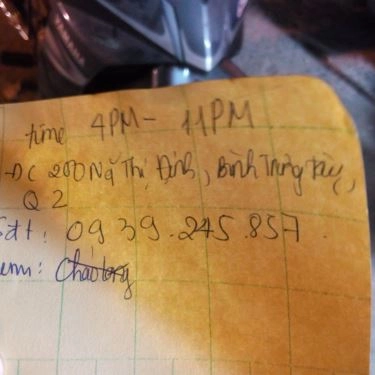 time 4PM - 11PM
ĐC 200 Ng Thị Định, Bình Trưng Tây,
Q2
Sđt: 0939.245.857